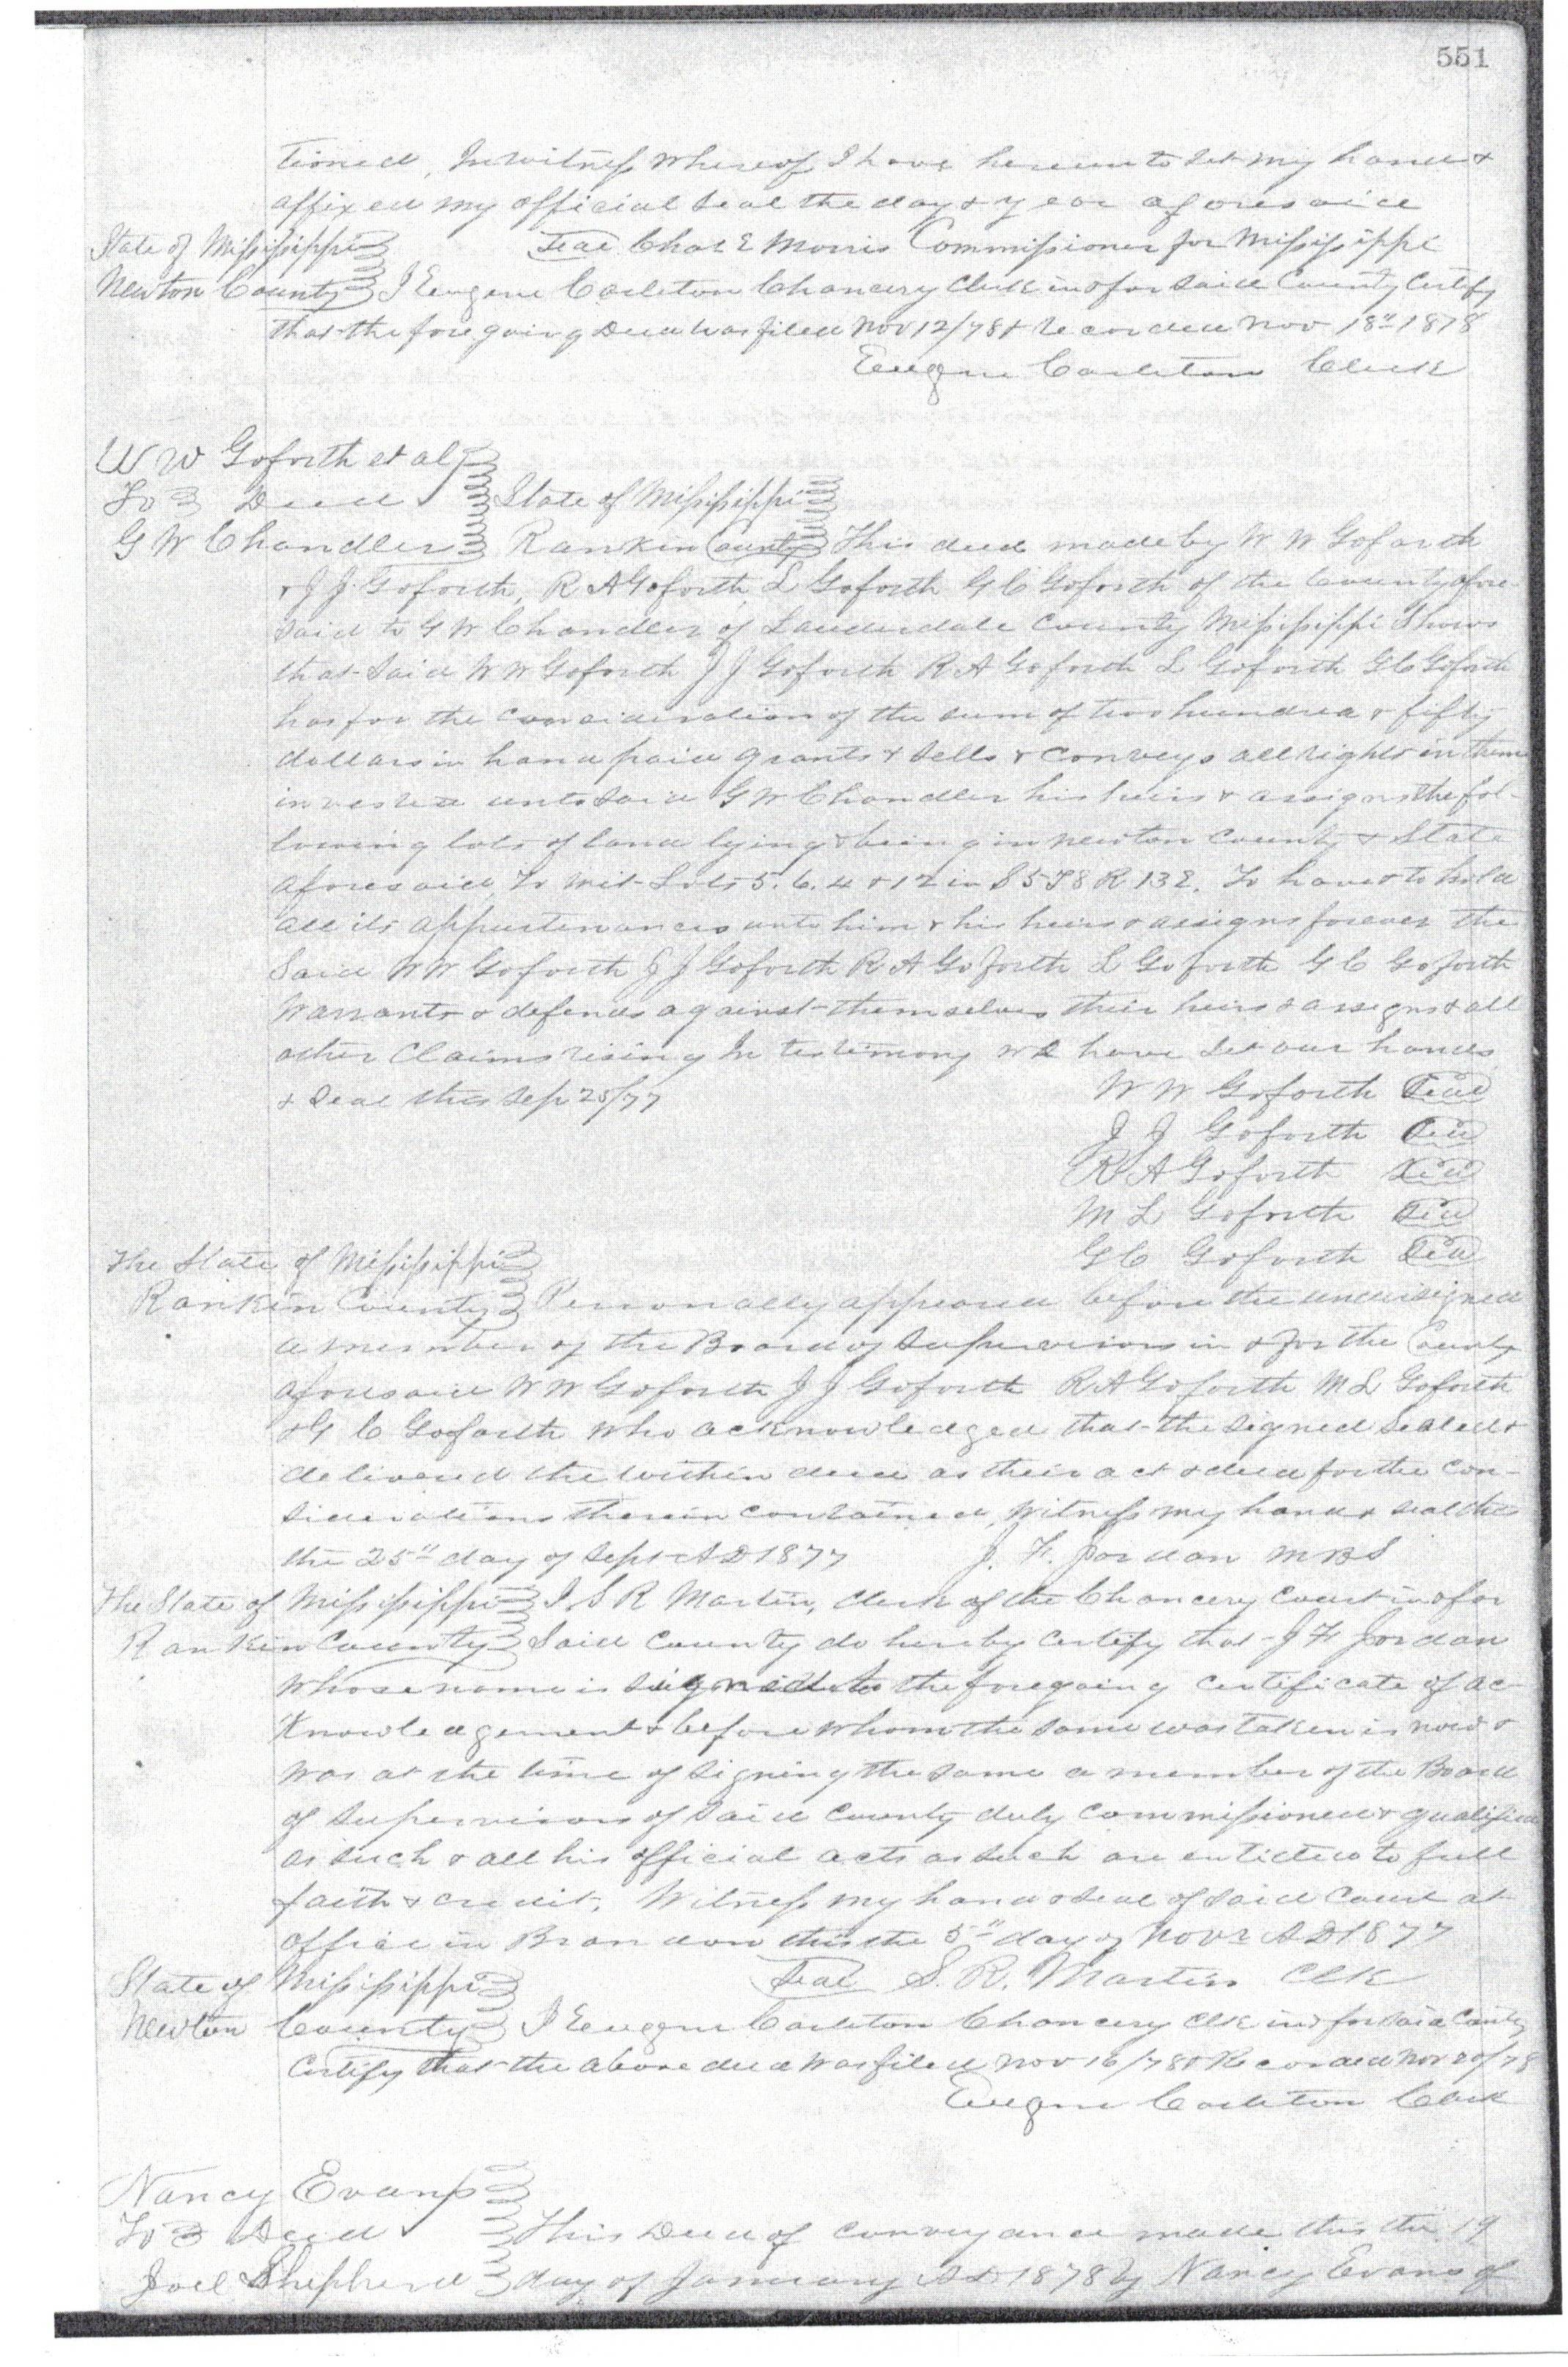 551
tioned, In witness whereof I have hereunto set my hand &
affixed my official seal the day & year aforesaid
State of Mississippi Seal Chas E Morris Commissioner for Mississippi
Newton County I Eugene Carleton Chancery Clerk in & for said County Certify
that the fore going Deed was filed Nov 12/78 & recorded Nov 18" 1878
Eugene Carleton Clerk
W W Goforth et al
To Deed State of Mississippi
G W Chandler Rankin County This deed made by W W Goforth
& J J Goforth, R A Goforth, L Goforth G C Goforth of the County afore
said to G W Chandler of Lauderdale County Mississippi Shows
that said W W Goforth J J Goforth R A Goforth L Goforth G C Goforth
has for the consideration of the sum of two hundred & fifty
dollars in hand paid grants & sells & conveys all rights in them
invested unto said G W Chandler his heirs & assigns the fol-
lowing lots of land lying & being in Newton County & State
aforesaid, To wit- Lots 5. 6. 4 & 12 in S5 T8 R 13 E. To have & to hold
all its appurtenances unto him & his heirs & assigns forever The
Said W W Goforth J J Goforth R A Goforth L Goforth G C Goforth
Warrants & defends against themselves their heirs & assigns & all
other Claims rising In testimony we have set our hands
& Seal this Sep 25/77 W W Goforth Seal
J J Goforth Seal
R A Goforth Seal
M L Goforth Seal
G C Goforth Seal
The State of Mississippi
Rankin County Personally appeared before the undersigned
a member of the Board of Supervisors in & for the County
aforesaid W W Goforth J J Goforth R A Goforth M L Goforth
& G C Goforth who acknowledged that the signed sealed &
delivered the within deed as their act & deed for the con-
siderations therein contained, Witness my hand & seal this
the 25" day of Sept A D 1877 J. H. Jordan M B S
The State of Mississippi I, S R Martin, Clerk of the Chancery Court in & for
Rankin County Said County do hereby certify that J H Jordan
Whose name is signed to the foregoing certificate of ac-
knowledgement & before whom the same was taken is now &
was at the time of signing the same a member of the Board
of Supervisors of said County duly commissioned & qualified
as such & all his official acts as such are entitled to full
faith & credit, Witness my hand & Seal of said Court at
office in Brandon this the 5" day of Novr A D 1877
State of Mississippi Seal S. R. Martin Clk
Newton County I Eugene Carleton Chancery Clk in & for said County
Certify that the above deed was filed Nov 16/78 & Recorded Nov 20/78
Eugene Carleton Clerk
Nancy Evans
To Deed This Deed of conveyance made this the 19
Joel Shepherd day of January A D 1878 by Nancy Evans of